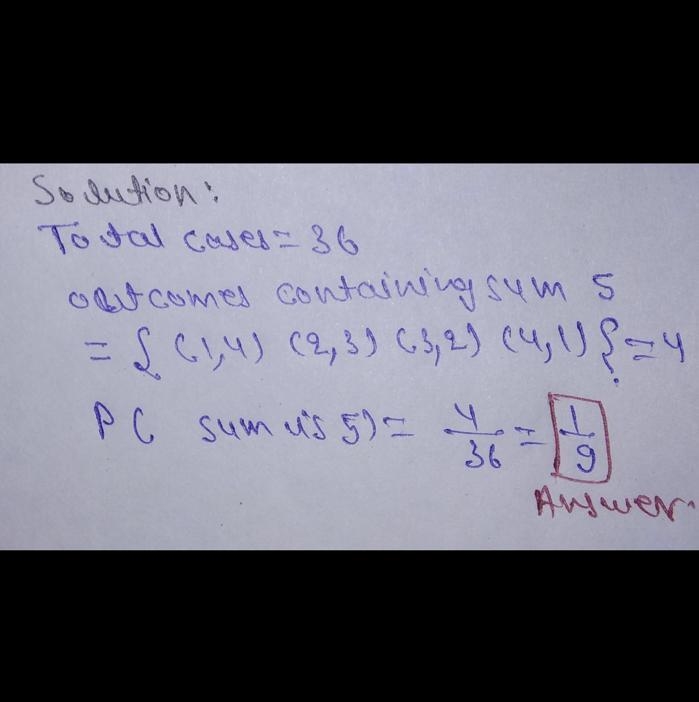 Solution:
Total cases = 36
outcomes containing sum 5
= { (1,4) (2,3) (3,2) (4,1) } = 4
P( sum is 5) = 4/36 = 1/9
Answer.